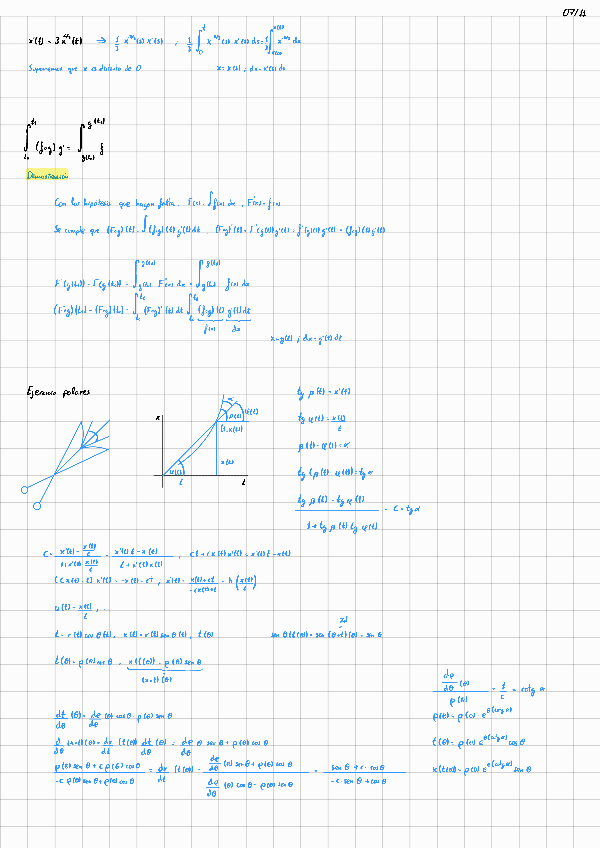 07/11
x'(t) = 3 x^{2/3}(t) ⇒ 1/3 x^{-2/3}(s) x'(s) , 1/3 ∫_0^t x^{-2/3}(s) x'(s) ds = 1/3 ∫_{x(0)}^{x(t)} x^{-2/3} dx
Supongamos que x es distinto de 0 x = x(s) ; dx = x'(s) ds
∫_{t_0}^{t_1} (f∘g) g' = ∫_{g(t_0)}^{g(t_1)} f
Demostración
Con las hipótesis que hagan falta. F(x) = ∫ f(x) dx , F'(x) = f(x)
Se cumple que (F∘g)(t) = ∫ (f∘g)(t) g'(t) dt . (F∘g)'(t) = F'(g(t)) g'(t) = f(g(t)) g'(t) = (f∘g)(t) g'(t)
F(g(t_1)) - F(g(t_0)) = ∫_{g(t_0)}^{g(t_1)} F'(x) dx = ∫_{g(t_0)}^{g(t_1)} f(x) dx
(F∘g)(t_1) - (F∘g)(t_0) = ∫_{t_0}^{t_1} (F∘g)'(t) dt = ∫_{t_0}^{t_1} (f∘g)(t) g'(t) dt
f(x) dx
x = g(t) ; dx = g'(t) dt
Ejercicio polares
x
α
β(t)
φ(t)
(t, x(t))
x(t)
φ(t)
t
t
tg β(t) = x'(t)
tg φ(t) = x(t)/t
β(t) - φ(t) = α
tg (β(t) - φ(t)) = tg α
(tg β(t) - tg φ(t)) / (1 + tg β(t) tg φ(t)) = c = tg α
c = (x'(t) - x(t)/t) / (1 + x'(t) x(t)/t) = (x'(t) t - x(t)) / (t + x'(t) x(t)) , ct + c x(t) x'(t) = x'(t) t - x(t)
(c x(t) - t) x'(t) = -x(t) - ct , x'(t) = (x(t) + ct) / (-c x(t) + t) = h (x(t)/t)
u(t) = x(t)/t , ...
t = r(t) cos θ(t), x(t) = r(t) sen θ(t), t(θ)
Id
sen θ(t(θ)) = sen (θ∘t)(θ) = sen θ
t(θ) = ρ(θ) cos θ , x(t(θ)) = ρ(θ) sen θ
(x∘t)(θ)
dt/dθ (θ) = dρ/dθ (θ) cos θ - ρ(θ) sen θ
d/dθ (x∘t)(θ) = dx/dt (t(θ)) dt/dθ (θ) = dρ/dθ θ sen θ + ρ(θ) cos θ
(ρ(θ) sen θ + c ρ(θ) cos θ) / (-c ρ(θ) sen θ + ρ(θ) cos θ) = dx/dt (t(θ)) = (dρ/dθ (θ) sen θ + ρ(θ) cos θ) / (dρ/dθ (θ) cos θ - ρ(θ) sen θ) = (sen θ + c · cos θ) / (-c sen θ + cos θ)
(dρ/dθ (θ)) / ρ(θ) = 1/c = cotg α
ρ(θ) = ρ(0) · e^{θ(cotg α)}
t(θ) = ρ(0) e^{θ(cotg α)} cos θ
x(t(θ)) = ρ(0) e^{θ(cotg α)} sen θ